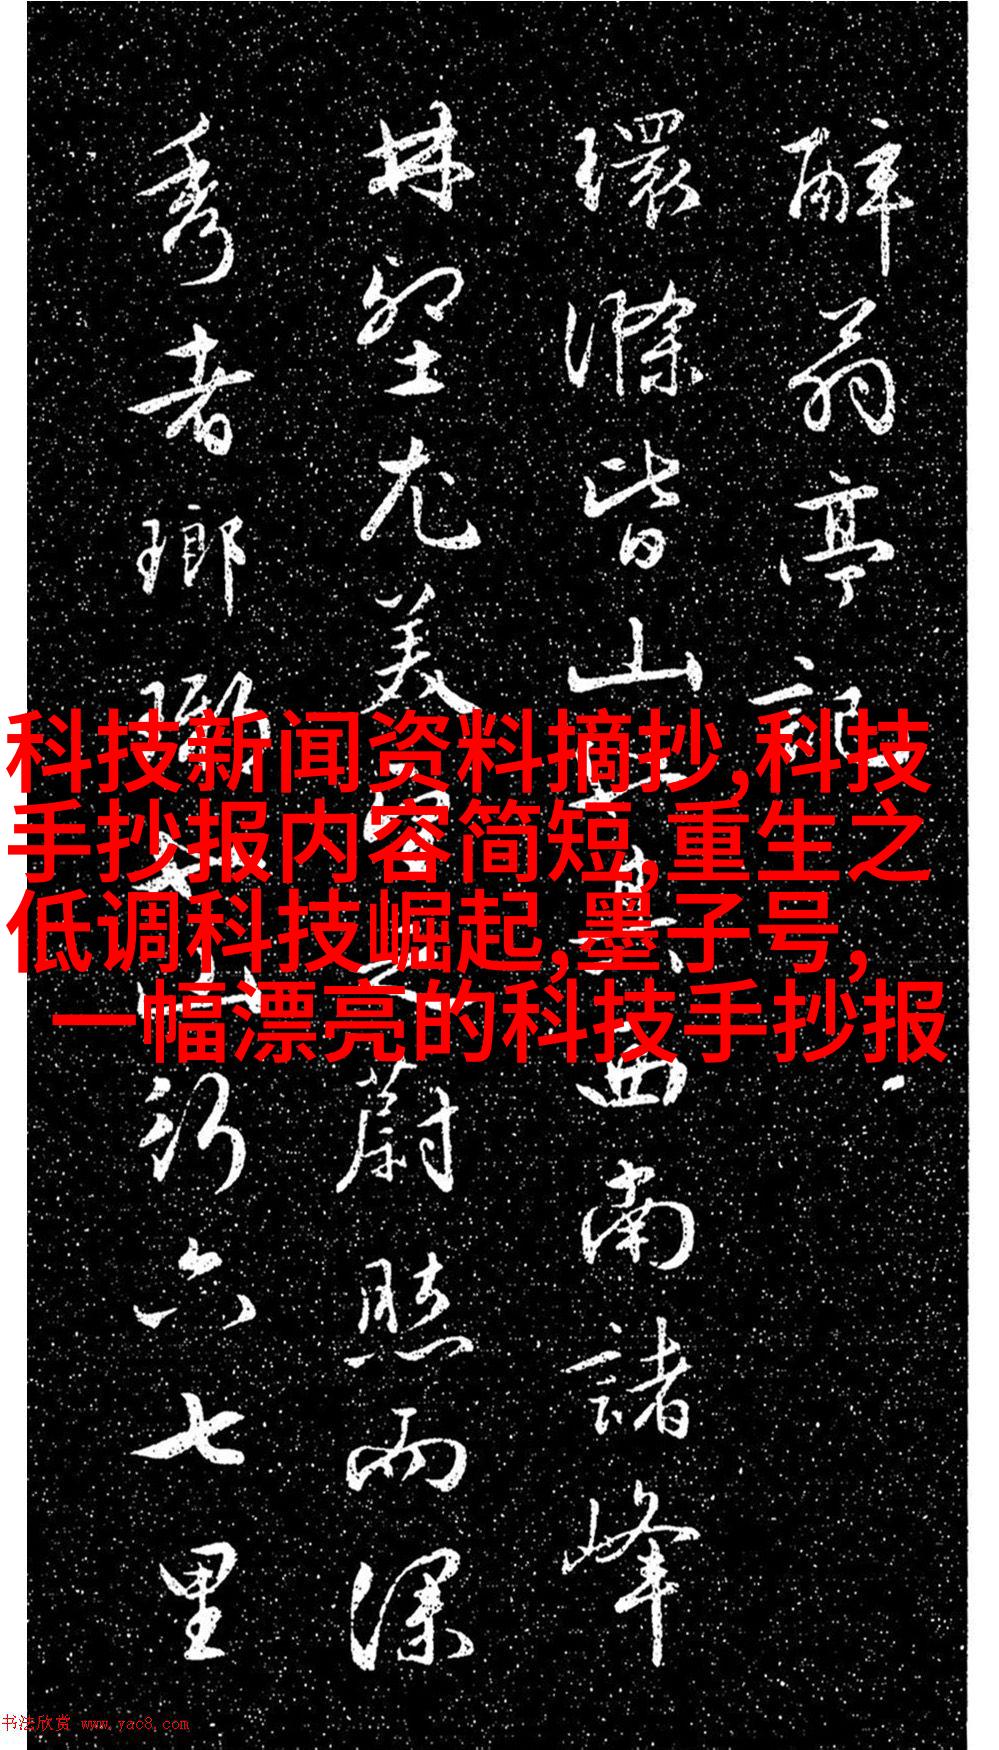 醉翁亭記
環滁皆山也其西南諸峰
林壑尤美望之蔚然而深
秀者瑯瑘也山行六七里
科技新闻资料摘抄,科技
手抄报内容简短,重生之
低调科技崛起,墨子号,
一幅漂亮的科技手抄报
书法欣赏 www.yac8.com